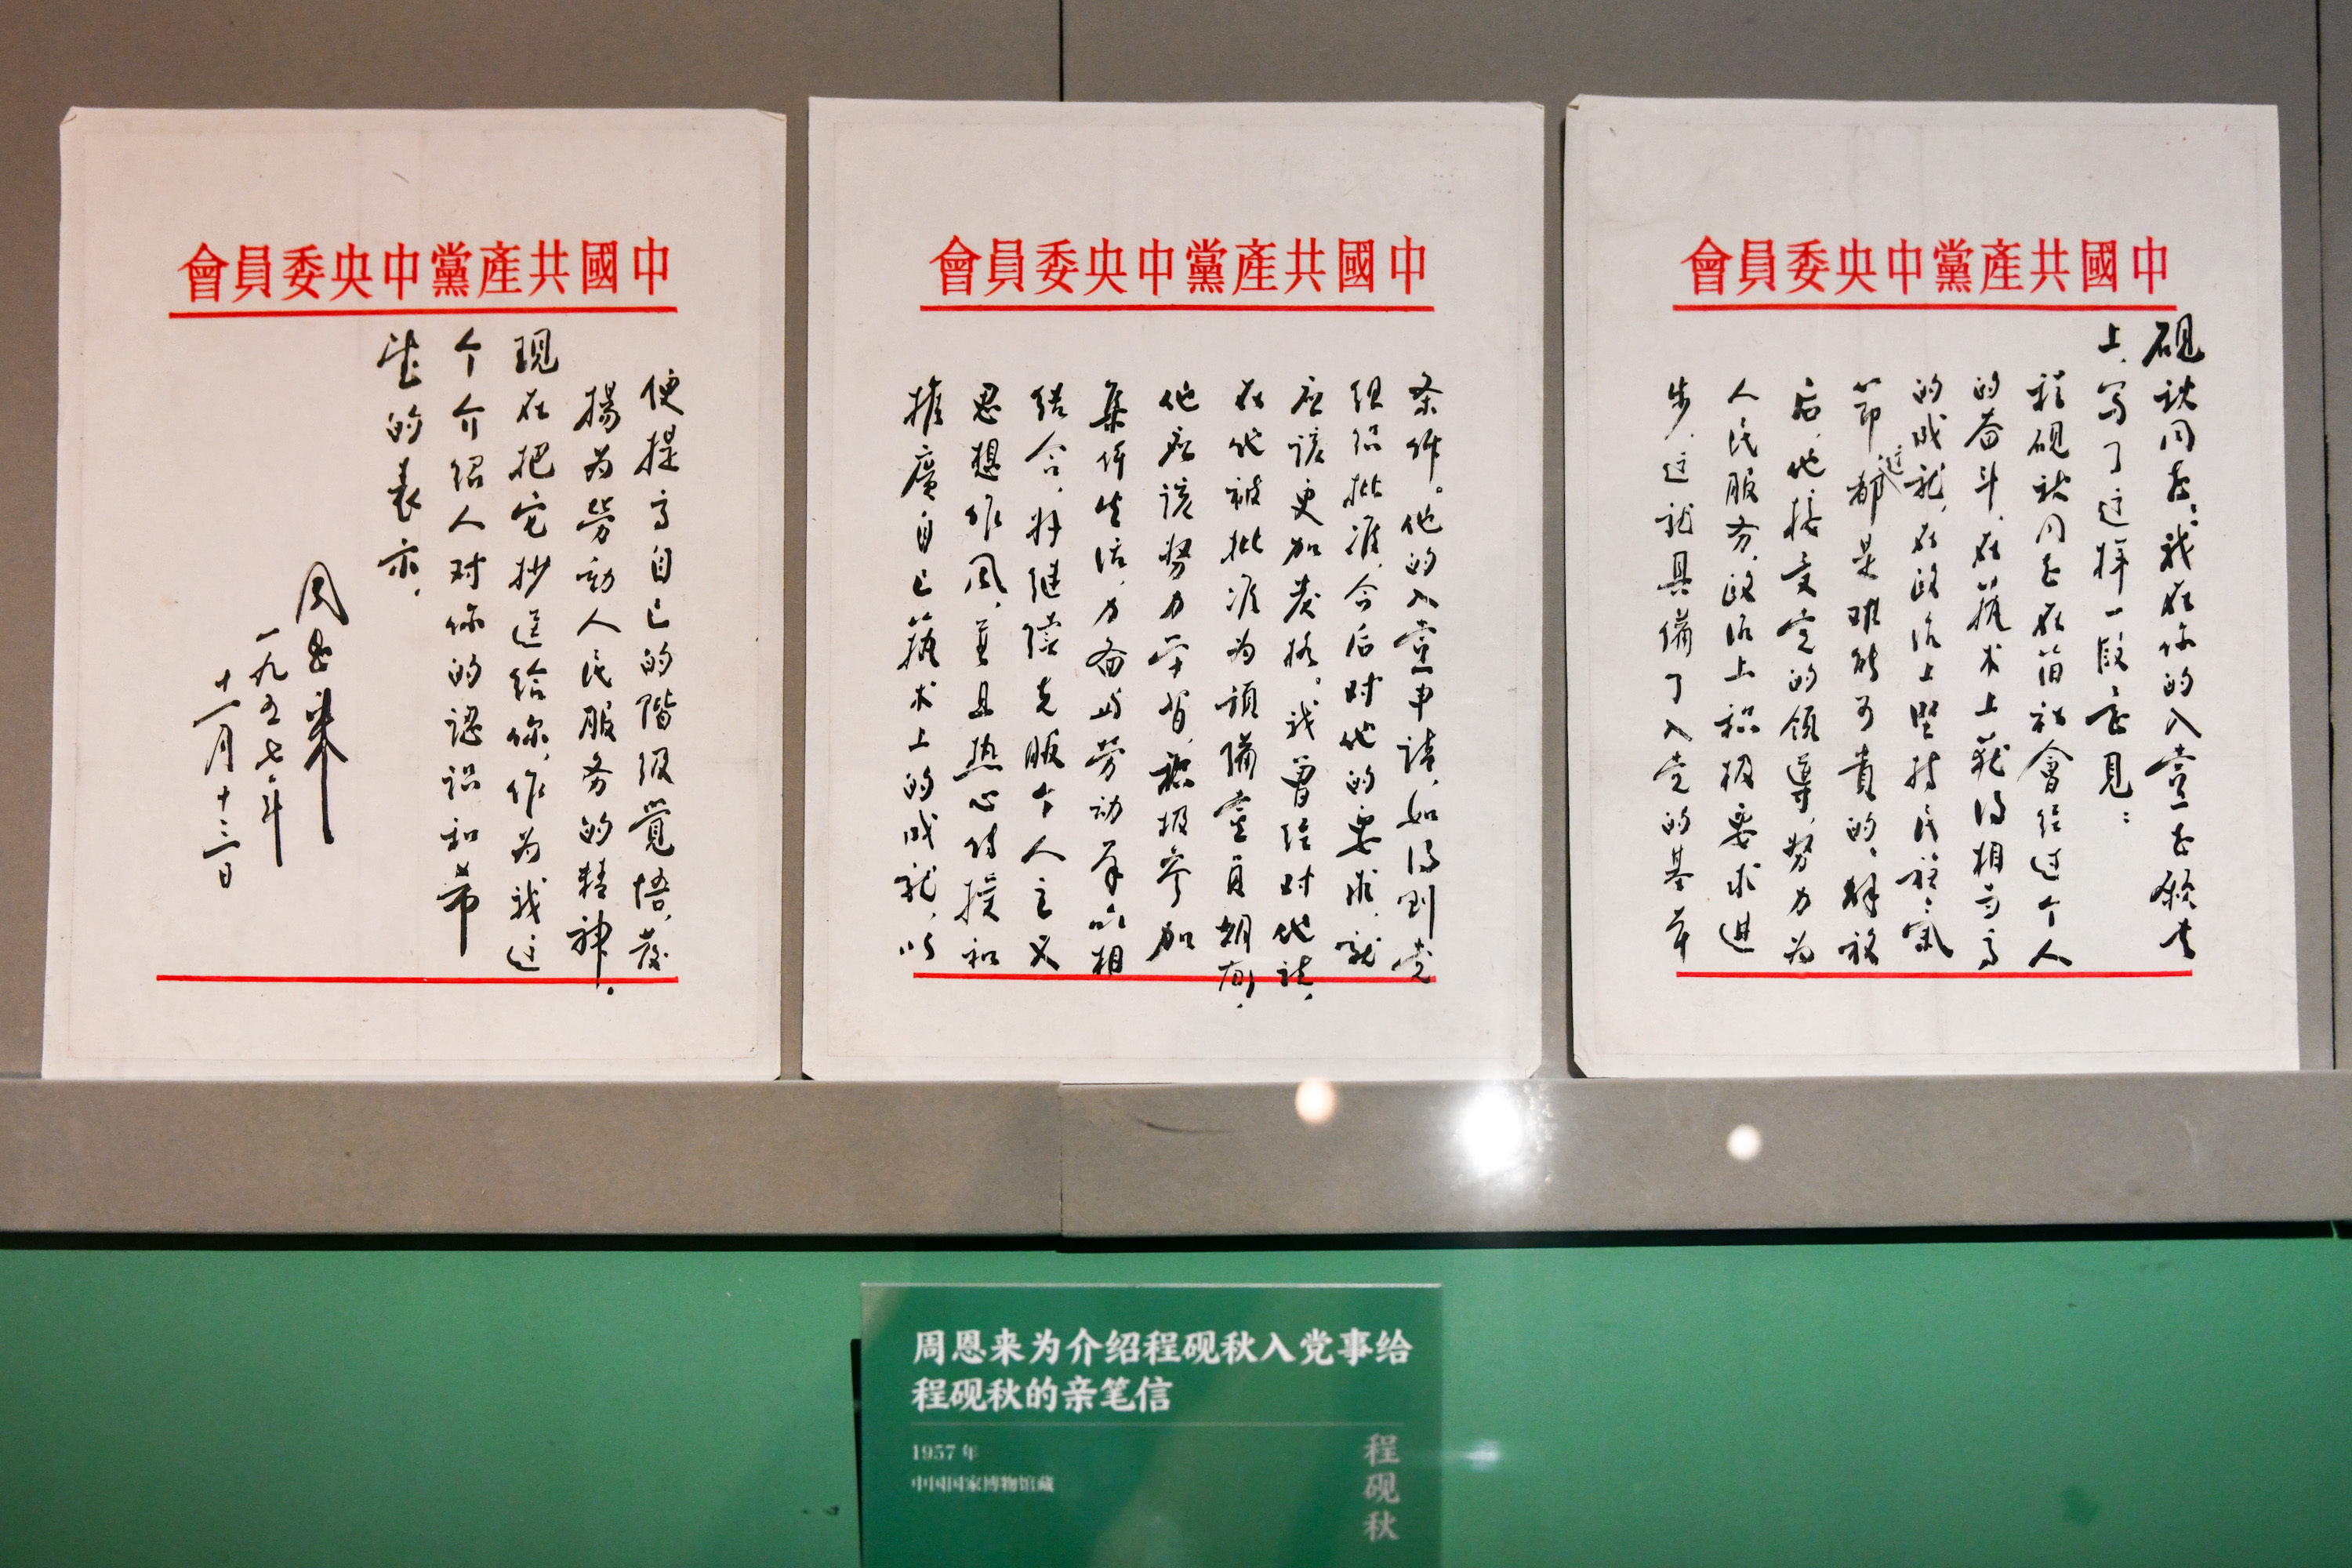 中國共產黨中央委員會
砚秋同志,我在你的入党志願书
上,写了这样一段意見:
程砚秋同志在旧社會经过个人
的奋斗,在藝术上获得相当高
的成就,在政治上坚持民族氣
节,这都是难能可貴的。解放
后,他接受党的领導,努力为
人民服务,政治上积极要求进
步,这就具備了入党的基本
中國共產黨中央委員會
条件。他的入党申請,如得到党
组织批准,今后对他的要求,就
应该更加严格。我曾经对他説,
在他被批准为预備党員期间,
他应该努力学習,积极参加
集体生活,力图与劳动群众相
结合,好继续克服个人主义
思想作风,并且热心传授和
推廣自己藝术上的成就,以
中國共產黨中央委員會
便提高自己的階级覺悟,发
揚为劳动人民服务的精神。
現在把它抄送给你,作为我这
个介绍人对你的認识和希
望的表示。
周恩来
一九五七年
十一月十三日
周恩来为介绍程砚秋入党事给
程砚秋的亲笔信
1957 年
中国国家博物馆藏
程砚秋